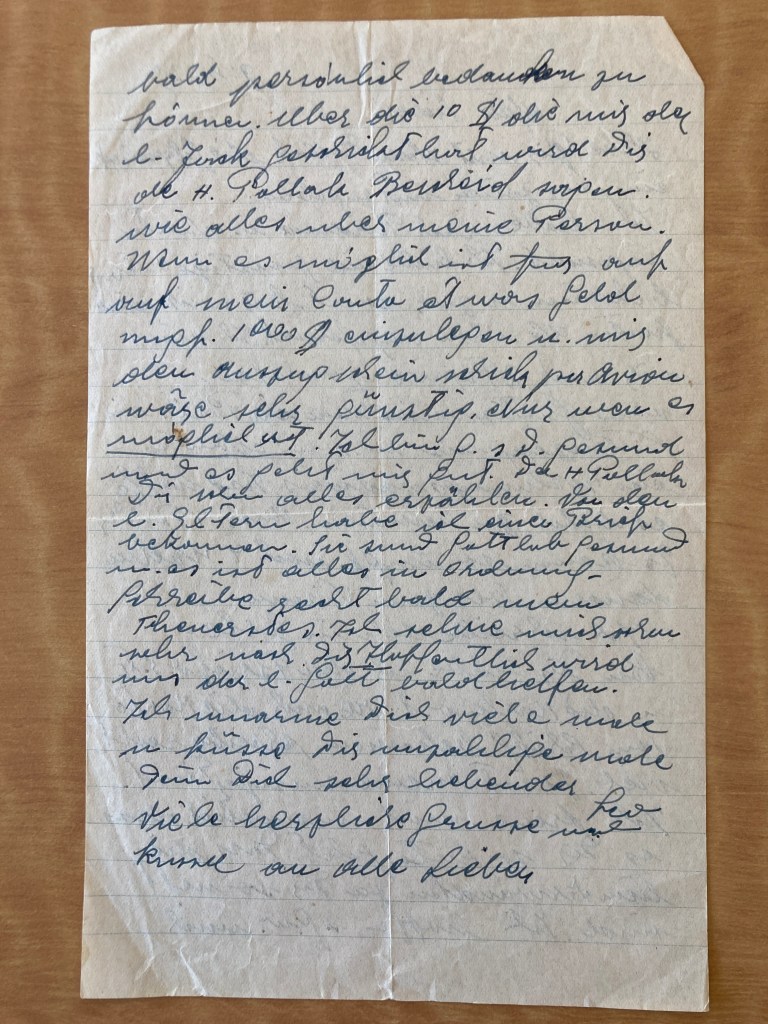 bald persönlich bedanken zu
können. Über die 10 $ die mir der
l. Jack geschickt hat wird Dir
der H. Pollak Bescheid sagen.
wie alles über meine Person.
Wenn es möglich ist auf
auf mein Conto etwas Geld
1000 $ einzulegen u. mir
den Auszug per Avion
wäre sehr günstig, nur wen es
möglich ist. Ich bin G. s D. gesund
und es geht mir gut. Der H Pollak
Dir alles erzählen. Von den
l. Eltern habe ich einen Brief
bekommen. Sie sind Gottlob gesund
u. es ist alles in Ordnung.
Schreibe recht bald mein
Theuerstes. Ich sehne mich schon
sehr nach Dir Hoffentlich wird
mir der l. Gott bald helfen.
Ich umarme Dich viele male
u küsse Dir unzählige male
Dein Dich sehr liebender
Leo
Viele herzliche Grüsse und
küsse an alle Lieben